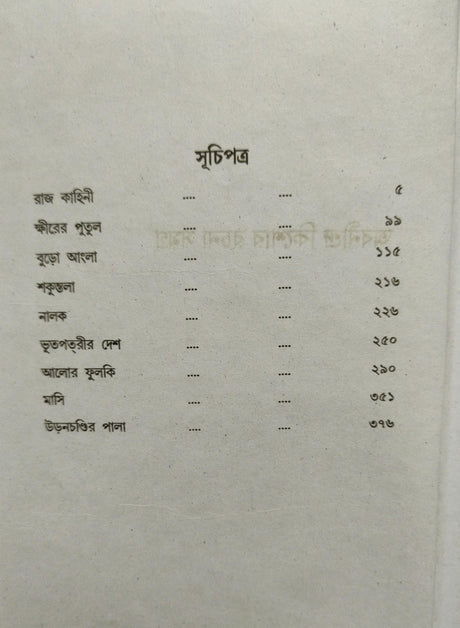 সূচিপত্র
রাজ কাহিনী .... .... ৫
ক্ষীরের পুতুল .... .... ৯৯
বুড়ো আংলা .... .... ১১৫
শকুন্তলা .... .... ২১৬
নালক .... .... ২২৬
ভূতপত্রীর দেশ .... .... ২৫০
আলোর ফুলকি .... .... ২৯০
মাসি .... .... ৩৫১
উড়নচণ্ডির পালা .... .... ৩৭৬